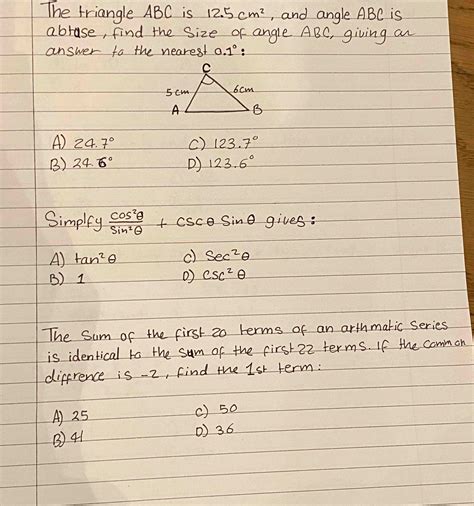 The triangle ABC is 12.5 cm², and angle ABC is
abtuse, find the size of angle ABC, giving an
answer to the nearest 0.1°:
C
5cm
6cm
A
B
A) 24.7°
C) 123.7°
B) 24.6°
D) 123.6°
Simplfy cos²θ/sin²θ + cscθ sinθ gives:
A) tan²θ
C) Sec²θ
B) 1
D) Csc²θ
The Sum of the first 20 terms of an arthmatic Series
is identical to the sum of the first 22 terms. If the common
diffrence is -2, find the 1st term:
A) 25
C) 50
B) 41
D) 36